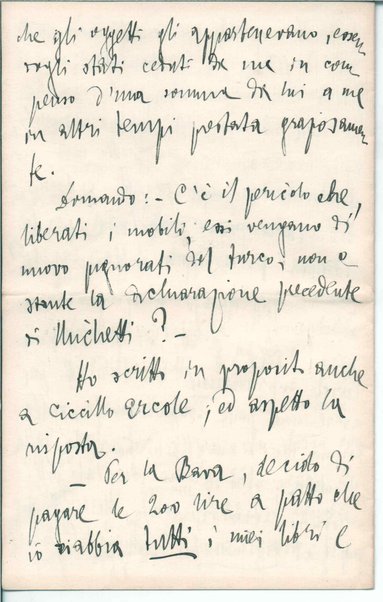 che gli oggetti gli appartenevano, essen
dogli stati ceduti da me in com
penso d'una somma da lui a me
in altri tempi prestata graziosamen
te.
Domando: - C'è il pericolo che,
liberati i mobili, essi vengano di
nuovo pignorati dal turco, non o
stante la dichiarazione precedente
di Nuchetti? -
Ho scritto in proposito anche
a Ciccillo Ercole; ed aspetto la
risposta.
- Per la Bava, decido di
pagare le 200 lire a patto che
io riabbia tutti i miei libri e